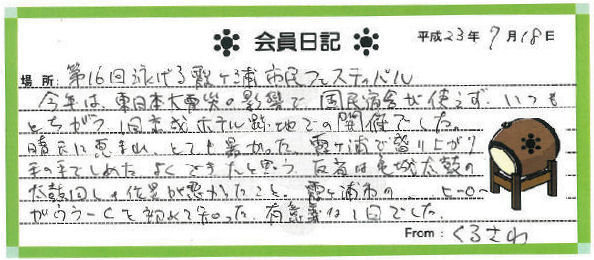 会員日記
平成23年7月18日
場所: 第16回泳げる霞ヶ浦市民フェスティバル
今年は、東日本大震災の影響で、国民宿舎が使えず、いつも
とちがう 旧京成ホテル跡地での開催でした。
晴天に恵まれ、とても暑かった 霞ヶ浦で盛り上がり
その手でしめた よくできたと思う 反省は 太鼓の
太鼓 の位置が悪かったこと、霞ヶ浦市の ヒーロー
が と初めて知った。有意義な1日でした。
From: くるさわ